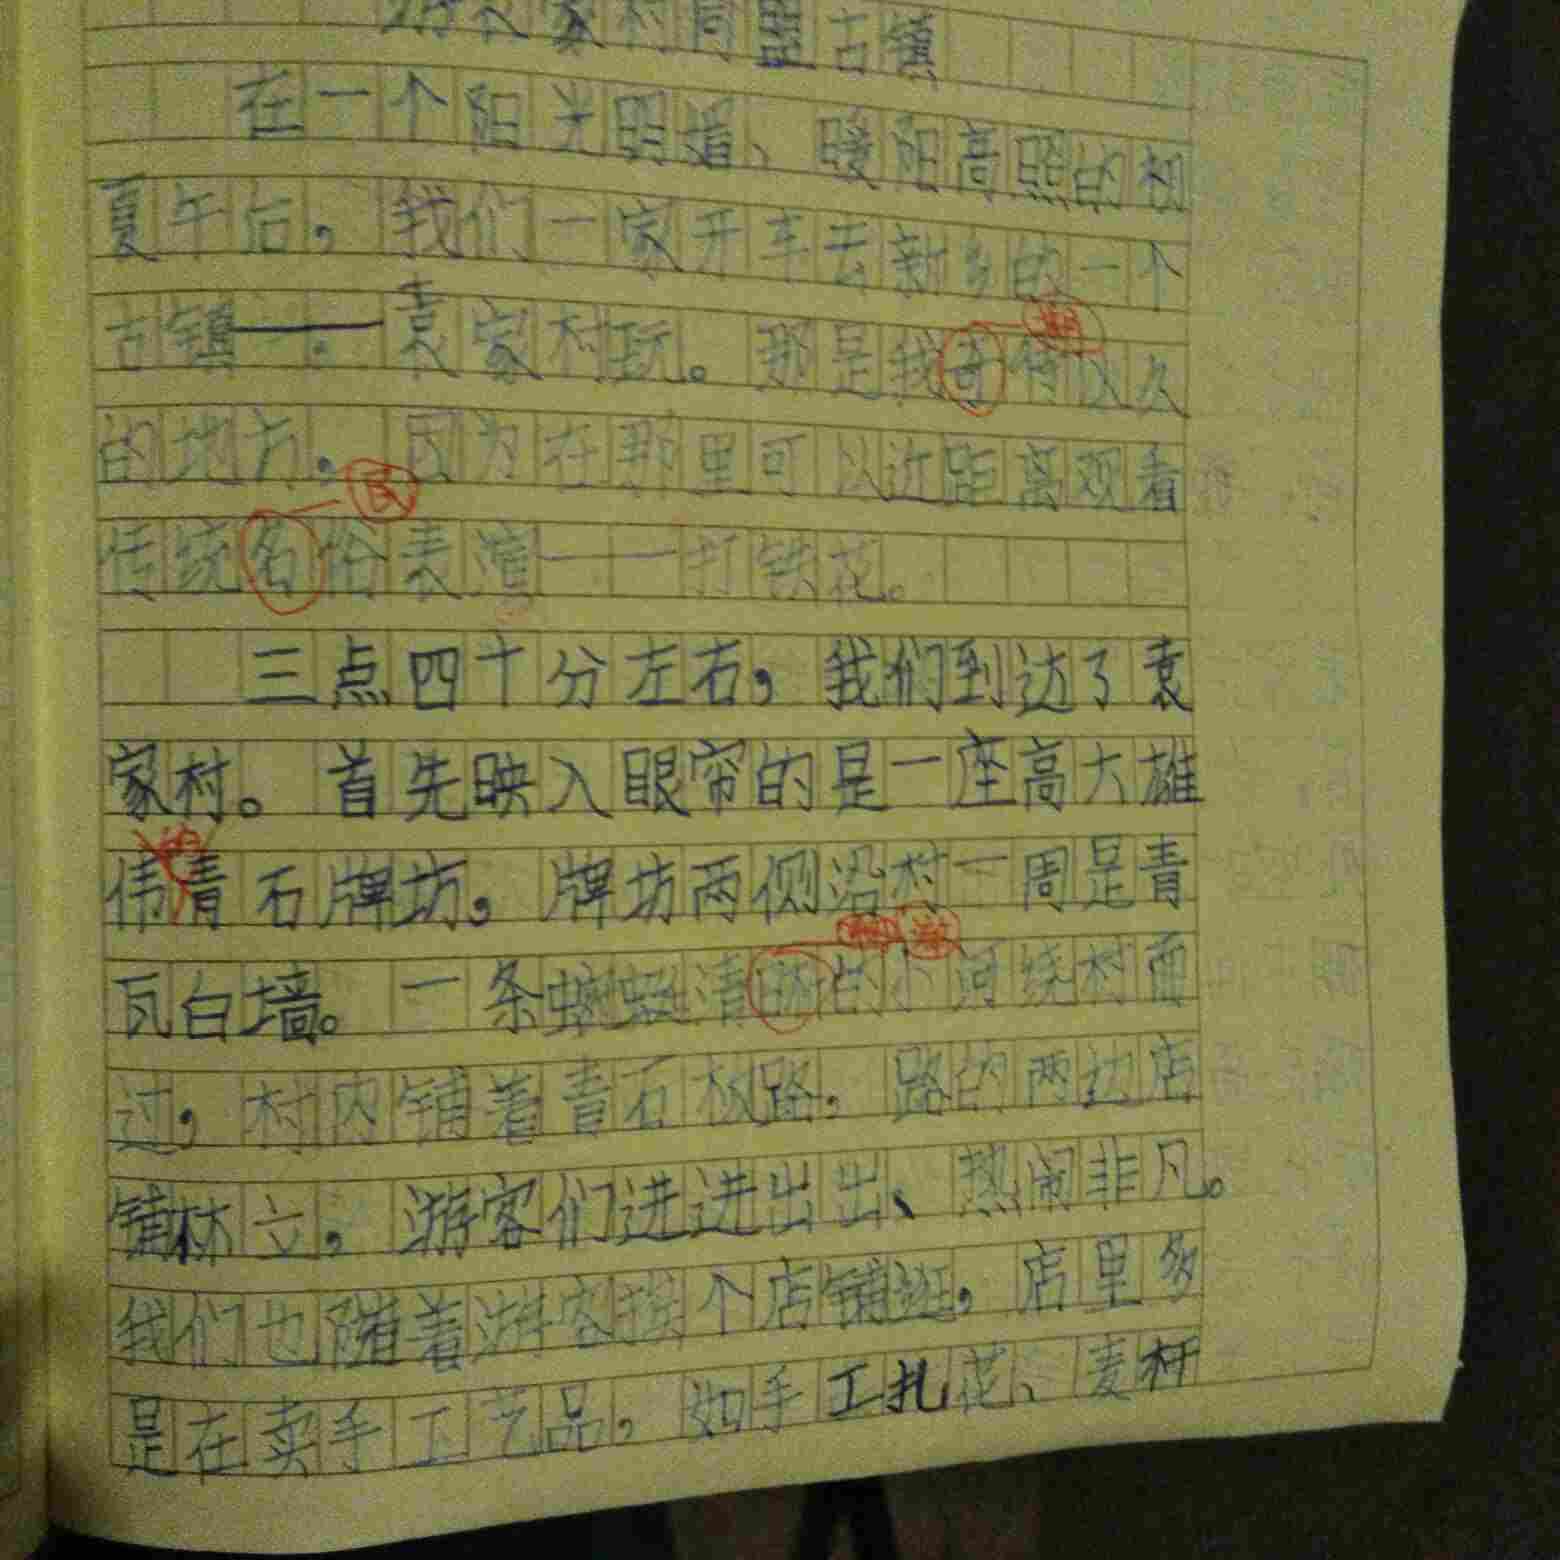 游袁家村同盟古镇
在一个阳光明媚、暖阳高照的初
夏午后，我们一家开车去新乡的一个
古镇——袁家村玩。那是我奇待以久
的地方，因为在那里可以近距离观看
民
传统名俗表演——打铁花。
三点四十分左右，我们到达了袁
家村。首先映入眼帘的是一座高大雄
的
伟青石牌坊，牌坊两侧沿村一周是青
瓦白墙。一条蜿蜒清的小河绕村而
过，村内铺着青石板路，路的两边店
铺林立，游客们进进出出、热闹非凡。
我们也随着游客挨个店铺逛，店里多
是在卖手工艺品，如手工扎花、麦秆